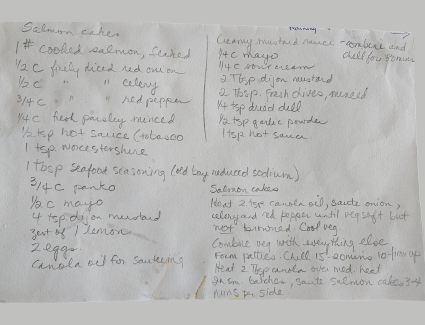 Salmon cakes
1# cooked salmon, flaked
1/2 C finely diced red onion
1/2 C " " celery
3/4 C " " red pepper
1/4 C. fresh parsley minced
1/2 tsp hot sauce (tobasco
1 tsp worcestershire
1 Tbsp seafood seasoning (old bay reduced sodium)
3/4 C panko
1/2 C mayo
4 tsp dijon mustard
zest of 1 lemon
2 eggs
canola oil for sauteing
Creamy mustard sauce - combine and
chill for 30 min
1/4 C mayo
1/4 C sour cream
2 Tbsp dijon mustard
2 Tbsp. fresh chives, minced
1/4 tsp dried dill
1/2 tsp garlic powder
1 tsp hot sauce
Salmon cakes
Heat 2 tsp canola oil, saute onion,
celery and red pepper until veg soft but
not browned. Cool veg
Combine veg with everything else
Form patties. Chill 15-20mins to firm up
Heat 2 Tbsp canola over med. heat
2 in sm. batches, saute salmon cakes 3-4
mins per side